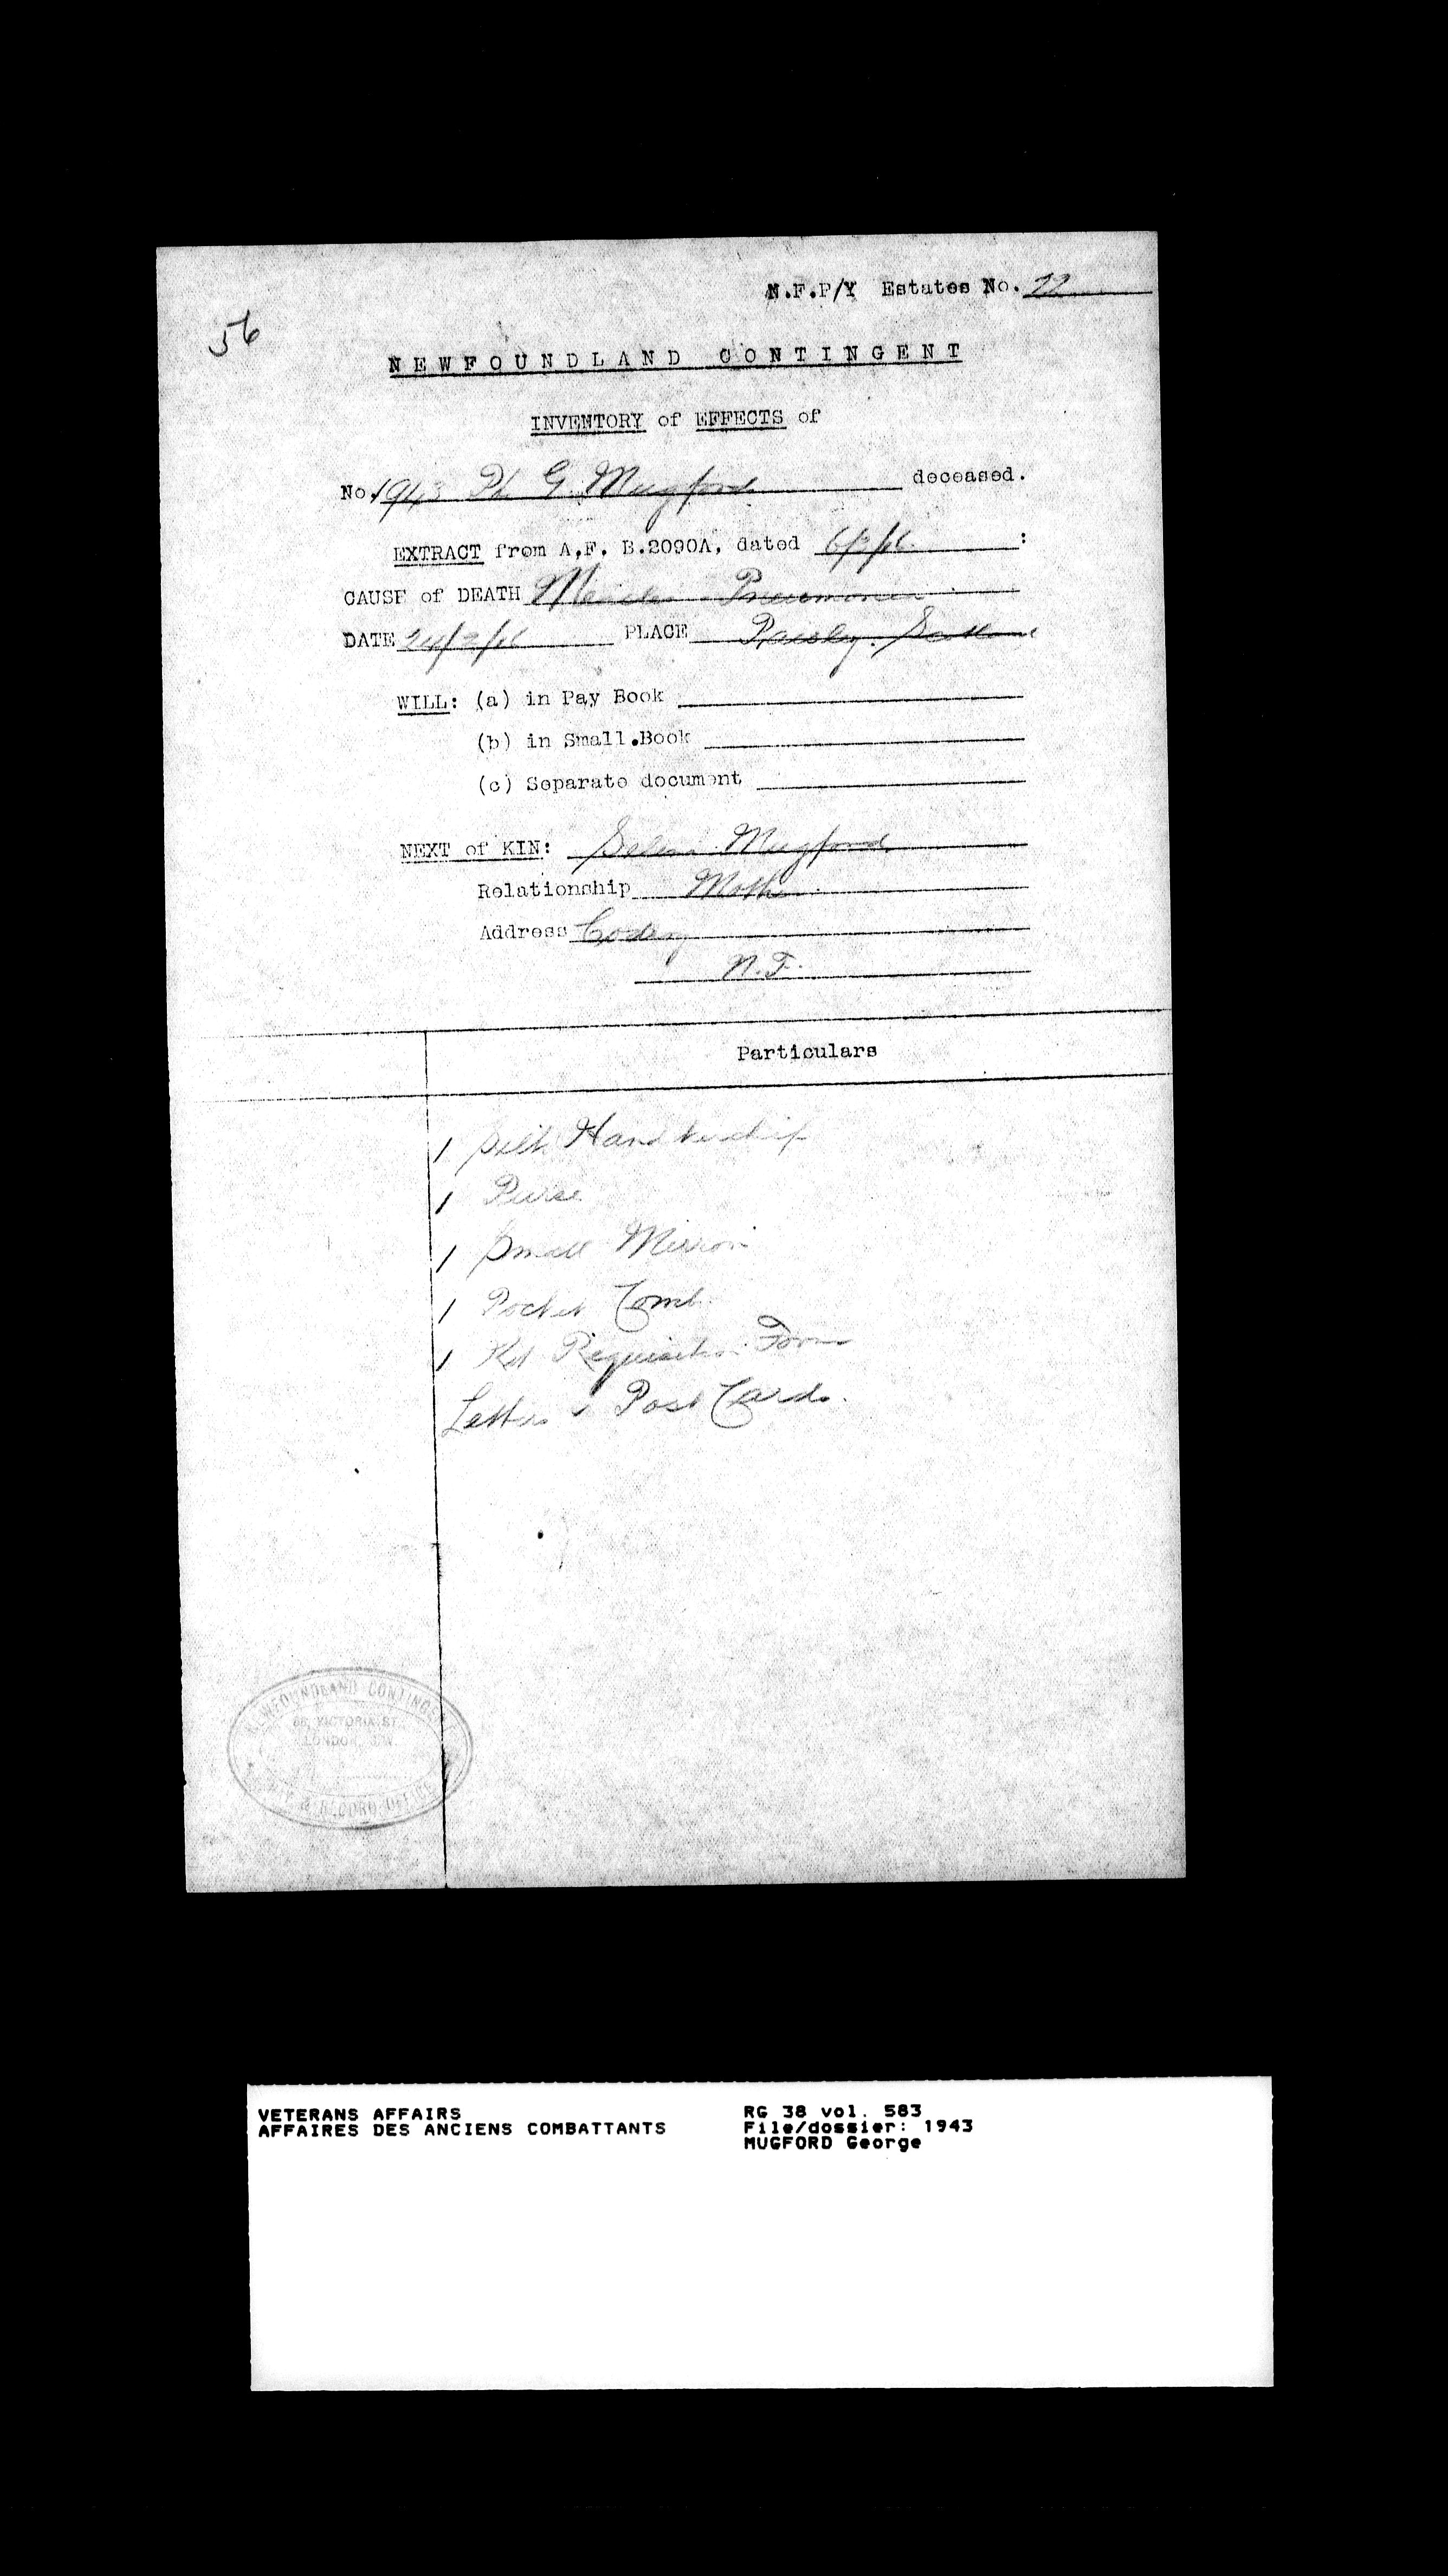 N.F.P/Y Estates No. 22
56
NEWFOUNDLAND CONTINGENT
INVENTORY of EFFECTS of
No. 1943 Pte G. Mugford deceased.
EXTRACT from A.F. B.2090A, dated 6/3/16 :
CAUSE of DEATH Measles Pneumonia
DATE 24/2/16 PLACE Paisley. Scotland
WILL: (a) in Pay Book
(b) in Small.Book
(c) Separate document
NEXT of KIN: Selina Mugford
Relationship Mother
Address Codroy
N.F.
Particulars
1 Silk Handkerchief
1 Purse
1 Small Mirror
1 Pocket Comb
1 Kit Requisition Form
Letters & Post Cards.
NEWFOUNDLAND CONTINGENT
VICTORIA ST.
LONDON, S.W.
& RECORD OFFICE
VETERANS AFFAIRS
AFFAIRES DES ANCIENS COMBATTANTS
RG 38 vol. 583
File/dossier: 1943
MUGFORD George